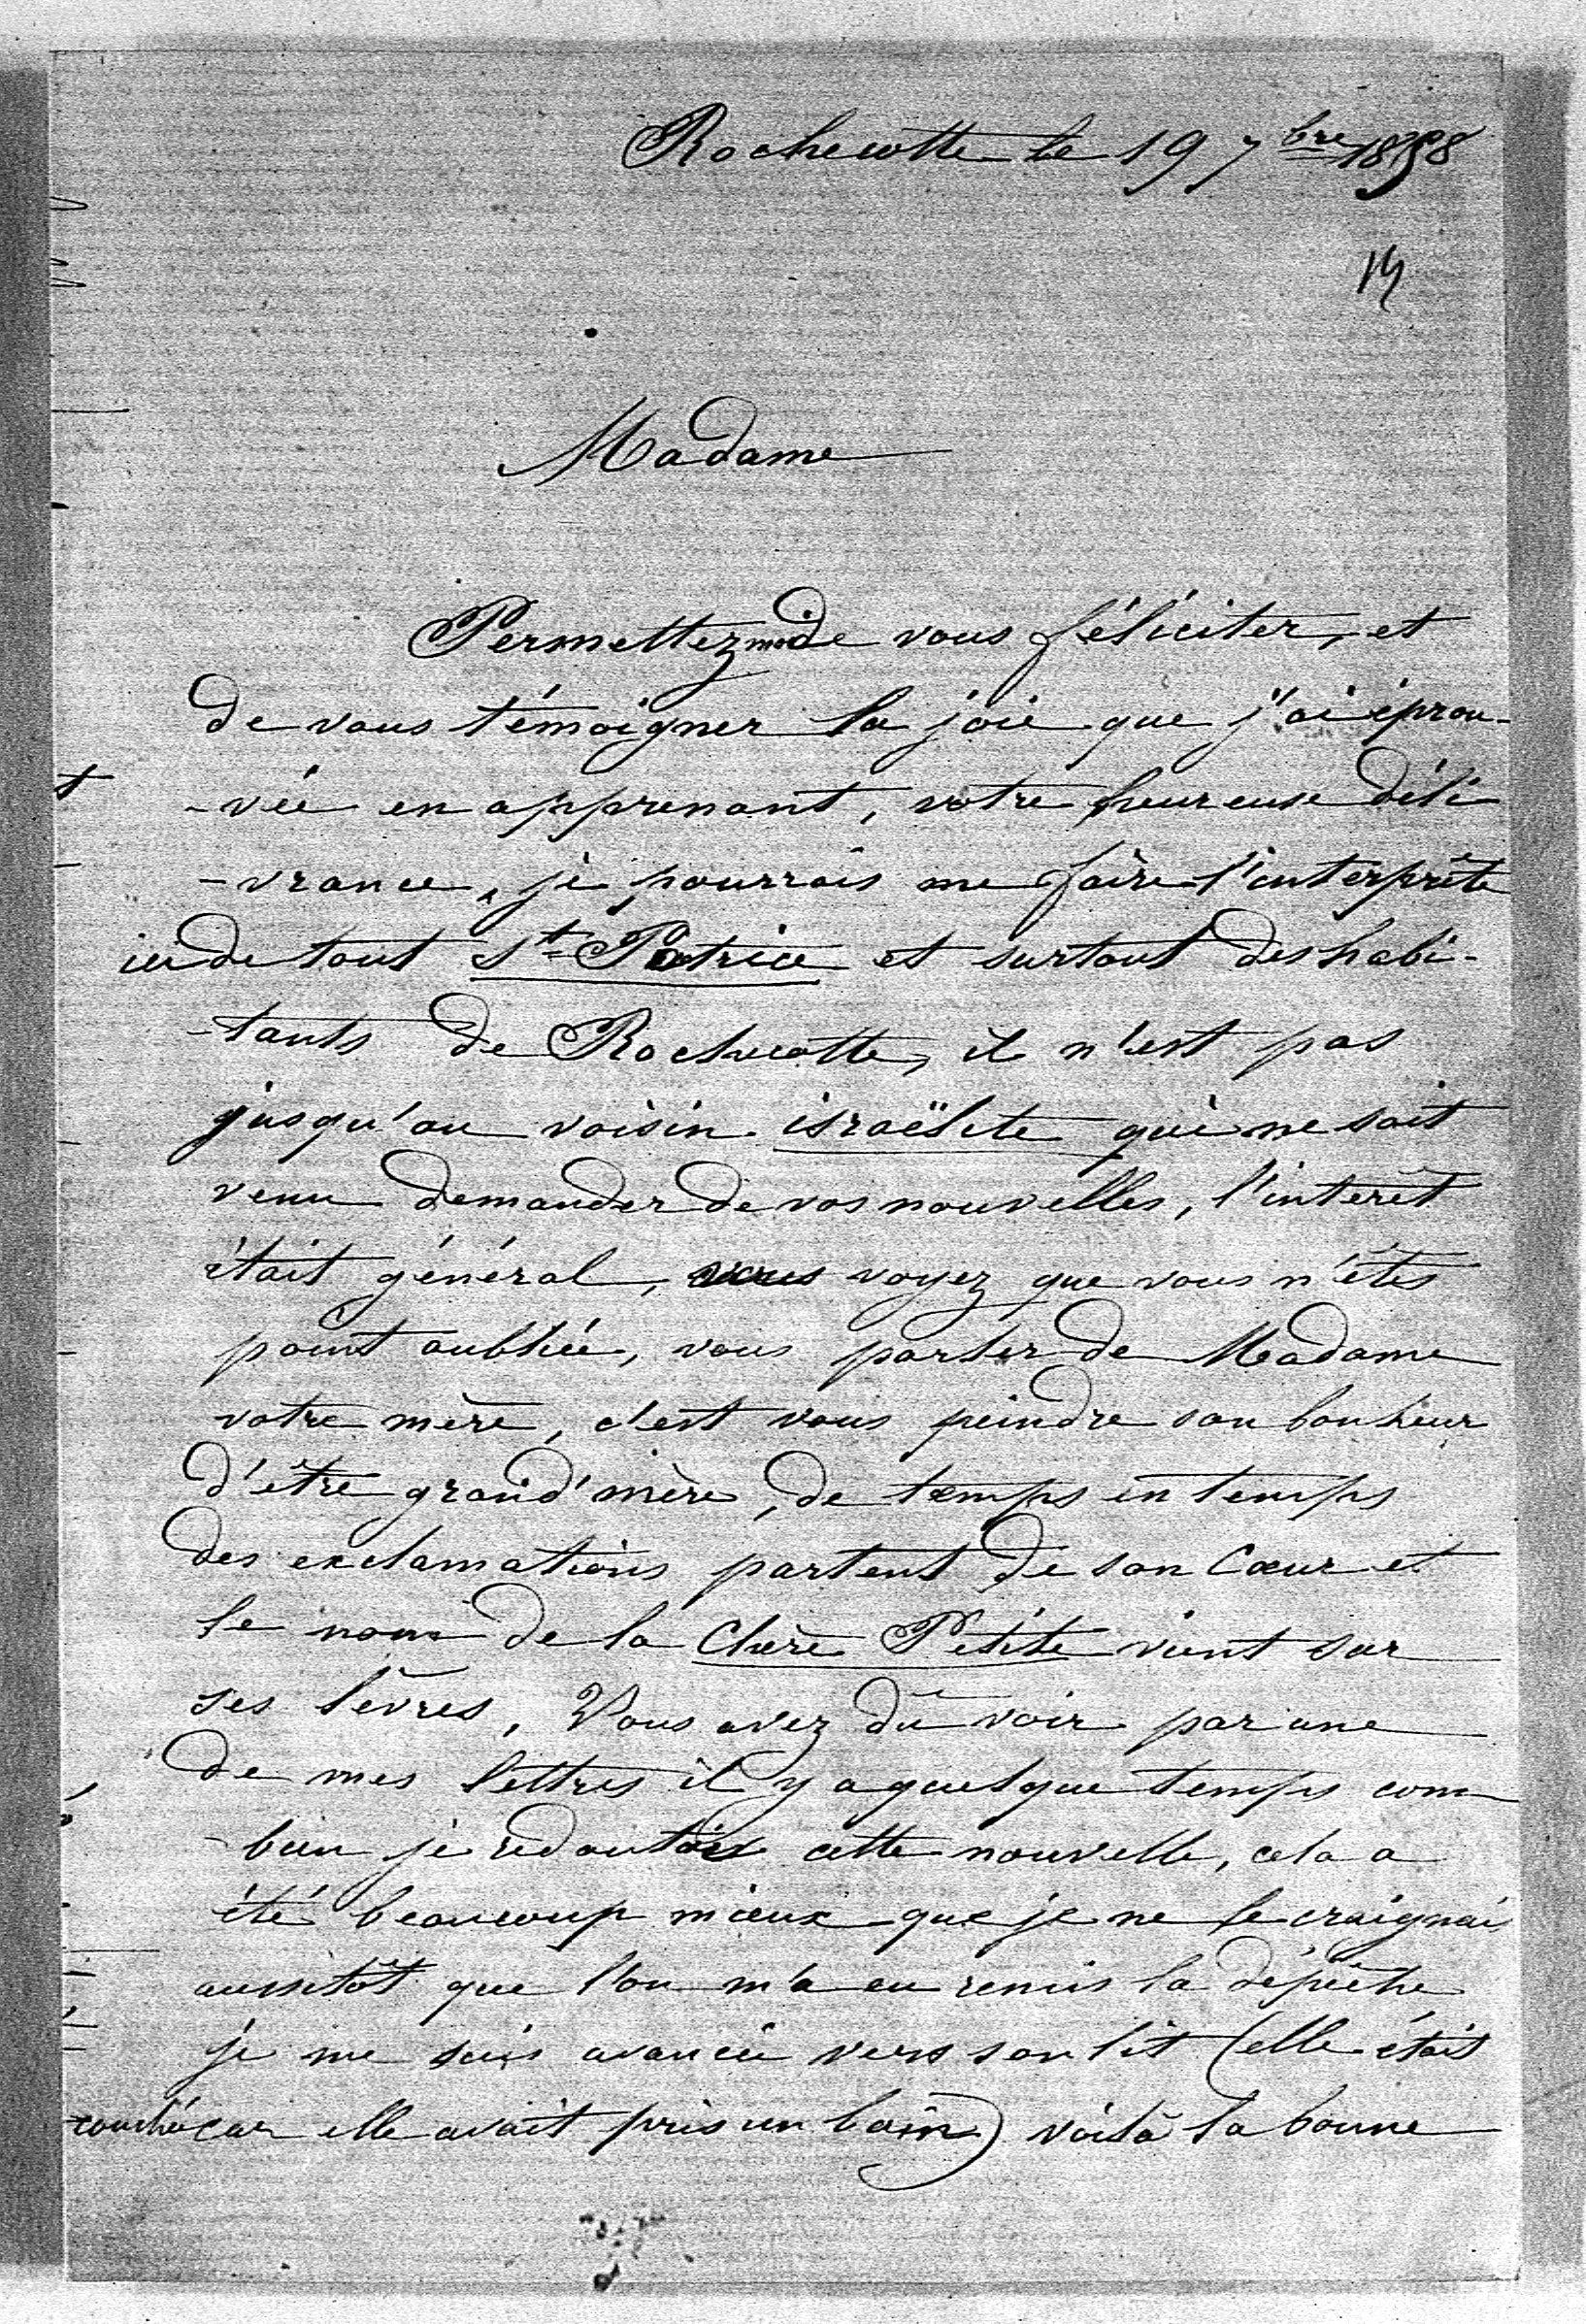 Rochecotte le 19 7bre 1858
14
Madame
Permettez moi de vous féliciter, et
de vous témoigner la joie que j'ai éprou-
-vée en apprenant, votre heureuse déli
-vrance, je pourrais me faire l'interprête
ici de tout St Patrice et surtout des habi-
-tants de Rochecotte, il n'est pas
jusqu'au voisin israëlite qui ne soit
venu demander de vos nouvelles, l'intérêt
était général, vous voyez que vous n'êtes
point oubliée, vous parler de Madame
votre mère, c'est vous peindre son bonheur
d'être grand'mère, de temps en temps
des exclamations partent de son Cœur et
le nom de la Chère Petite vient sur
ses lèvres, Vous avez dû voir par une
de mes lettres il y a quelque temps com
-bien je redoutais cette nouvelle, cela a
été beaucoup mieux que je ne le craignais
aussitôt que l'on m'a eu remis la dépêche
je me suis avancée vers son lit (elle était
couchée car elle avait pris un bain) voilà la bonne